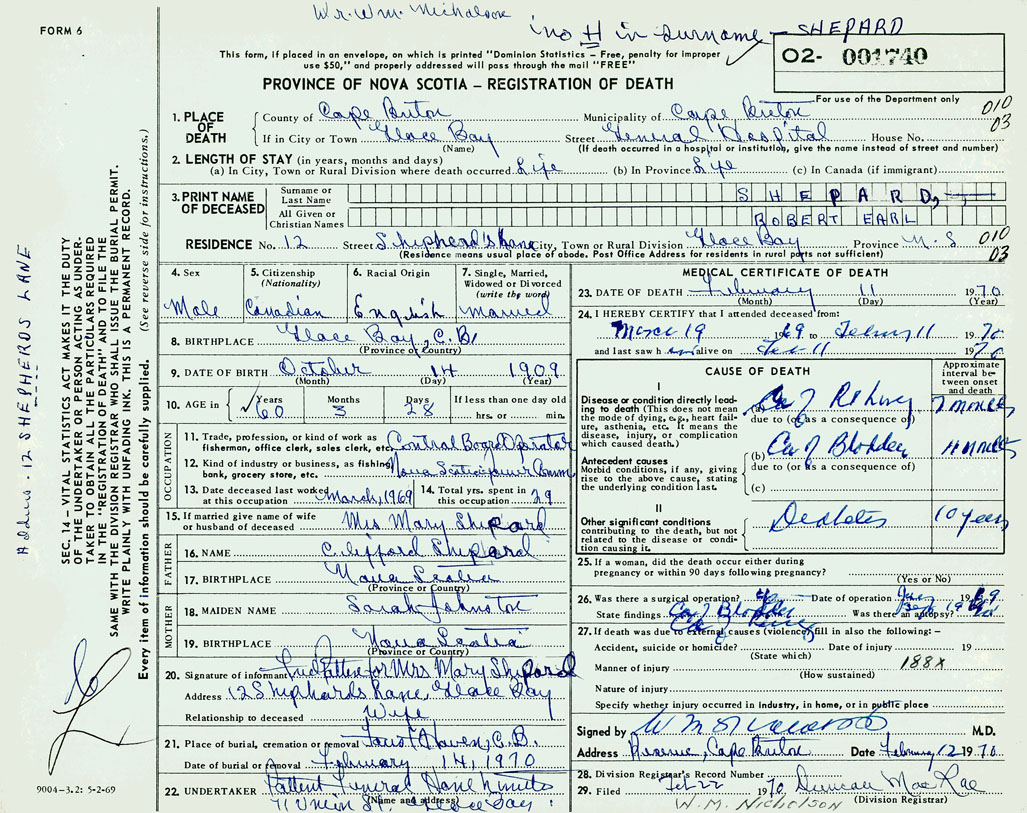 Wr. Wm. Nicholson
"no H in surname - SHEPARD
FORM 6
This form, if placed in an envelope, on which is printed "Dominion Statistics – Free, penalty for improper
use $50," and properly addressed will pass through the mail "FREE"
O2- 001740
PROVINCE OF NOVA SCOTIA – REGISTRATION OF DEATH
For use of the Department only
010
03
1. PLACE OF DEATH County of Cape Breton Municipality of Cape Breton
If in City or Town Glace Bay Street General Hospital House No.
(Name) (If death occurred in a hospital or institution, give the name instead of street and number)
2. LENGTH OF STAY (in years, months and days)
(a) In City, Town or Rural Division where death occurred Life (b) In Province Life (c) In Canada (if immigrant)
3. PRINT NAME OF DECEASED Surname or Last Name SHEPARD,
All Given or Christian Names ROBERT EARL
RESIDENCE No. 12 Street Shiphead's Lane City, Town or Rural Division Glace Bay Province N.S
010
03
(Residence means usual place of abode. Post Office Address for residents in rural parts not sufficient)
4. Sex Male
5. Citizenship (Nationality) Canadian
6. Racial Origin English
7. Single, Married, Widowed or Divorced (write the word) Married
8. BIRTHPLACE Glace Bay, C.B.
(Province or Country)
9. DATE OF BIRTH October 14 1909
(Month) (Day) (Year)
10. AGE in Years 60 Months 3 Days 28 If less than one day old hrs. or min.
OCCUPATION
11. Trade, profession, or kind of work as fisherman, office clerk, sales clerk, etc. Control Board Operator
12. Kind of industry or business, as fishing, bank, grocery store, etc. Nova Scotia Power Comm
13. Date deceased last worked at this occupation March, 1969
14. Total yrs. spent in this occupation 29
15. If married give name of wife or husband of deceased Mrs Mary Shepard
FATHER
16. NAME Clifford Shepard
17. BIRTHPLACE Nova Scotia
(Province or Country)
MOTHER
18. MAIDEN NAME Sarah Johnston
19. BIRTHPLACE Nova Scotia
(Province or Country)
20. Signature of informant for Mrs Mary Shepard
Address 12 Shiphards Lane, Glace Bay
Relationship to deceased Wife
21. Place of burial, cremation or removal C.B.
Date of burial or removal February 14, 1970
22. UNDERTAKER Patten Funeral Home Limited
(Name and address)
71 Union St. Glace Bay
MEDICAL CERTIFICATE OF DEATH
23. DATE OF DEATH February 11 1970
(Month) (Day) (Year)
24. I HEREBY CERTIFY that I attended deceased from:
March 19 1969 to Febry 11 1970
and last saw him alive on Feb 11 1970
CAUSE OF DEATH
Approximate interval between onset and death
I
Disease or condition directly leading to death (This does not mean the mode of dying, e.g., heart failure, asthenia, etc. It means the disease, injury, or complication which caused death.)
(a) Ca of Kidney 7 months
due to (or as a consequence of)
Antecedent causes
Morbid conditions, if any, giving rise to the above cause, stating the underlying condition last.
(b) Ca of Bladder 11 months
due to (or as a consequence of)
(c)
II
Other significant conditions contributing to the death, but not related to the disease or condition causing it. Diabetes 10 years
25. If a woman, did the death occur either during pregnancy or within 90 days following pregnancy?
(Yes or No)
26. Was there a surgical operation? Date of operation 1969
State findings Ca of Bladder Was there an autopsy?
27. If death was due to external causes (violence) fill in also the following: –
Accident, suicide or homicide? Date of injury 19
(State which)
Manner of injury 188X
(How sustained)
Nature of injury
Specify whether injury occurred in industry, in home, or in public place
Signed by M.D.
Address Reserve, Cape Breton Date February 12 1970
28. Division Registrar's Record Number
29. Filed Feb 22 1970, Duncan MacRae
(Division Registrar)
W. M. NICHOLSON
9004–3.2: 5-2-69
SEC. 14 – VITAL STATISTICS ACT MAKES IT THE DUTY
OF THE UNDERTAKER OR PERSON ACTING AS UNDERTAKER
TO OBTAIN ALL THE PARTICULARS REQUIRED
IN THE "REGISTRATION OF DEATH" AND TO FILE THE
SAME WITH THE DIVISION REGISTRAR WHO SHALL ISSUE THE BURIAL PERMIT.
WRITE PLAINLY WITH UNFADING INK. THIS IS A PERMANENT RECORD.
Every item of information should be carefully supplied. (See reverse side for instructions.)
Address. 12 SHEPERDS LANE